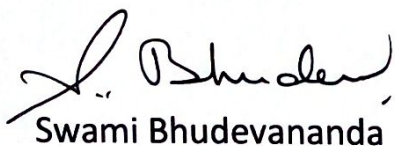 S. Bhudev
Swami Bhudevananda